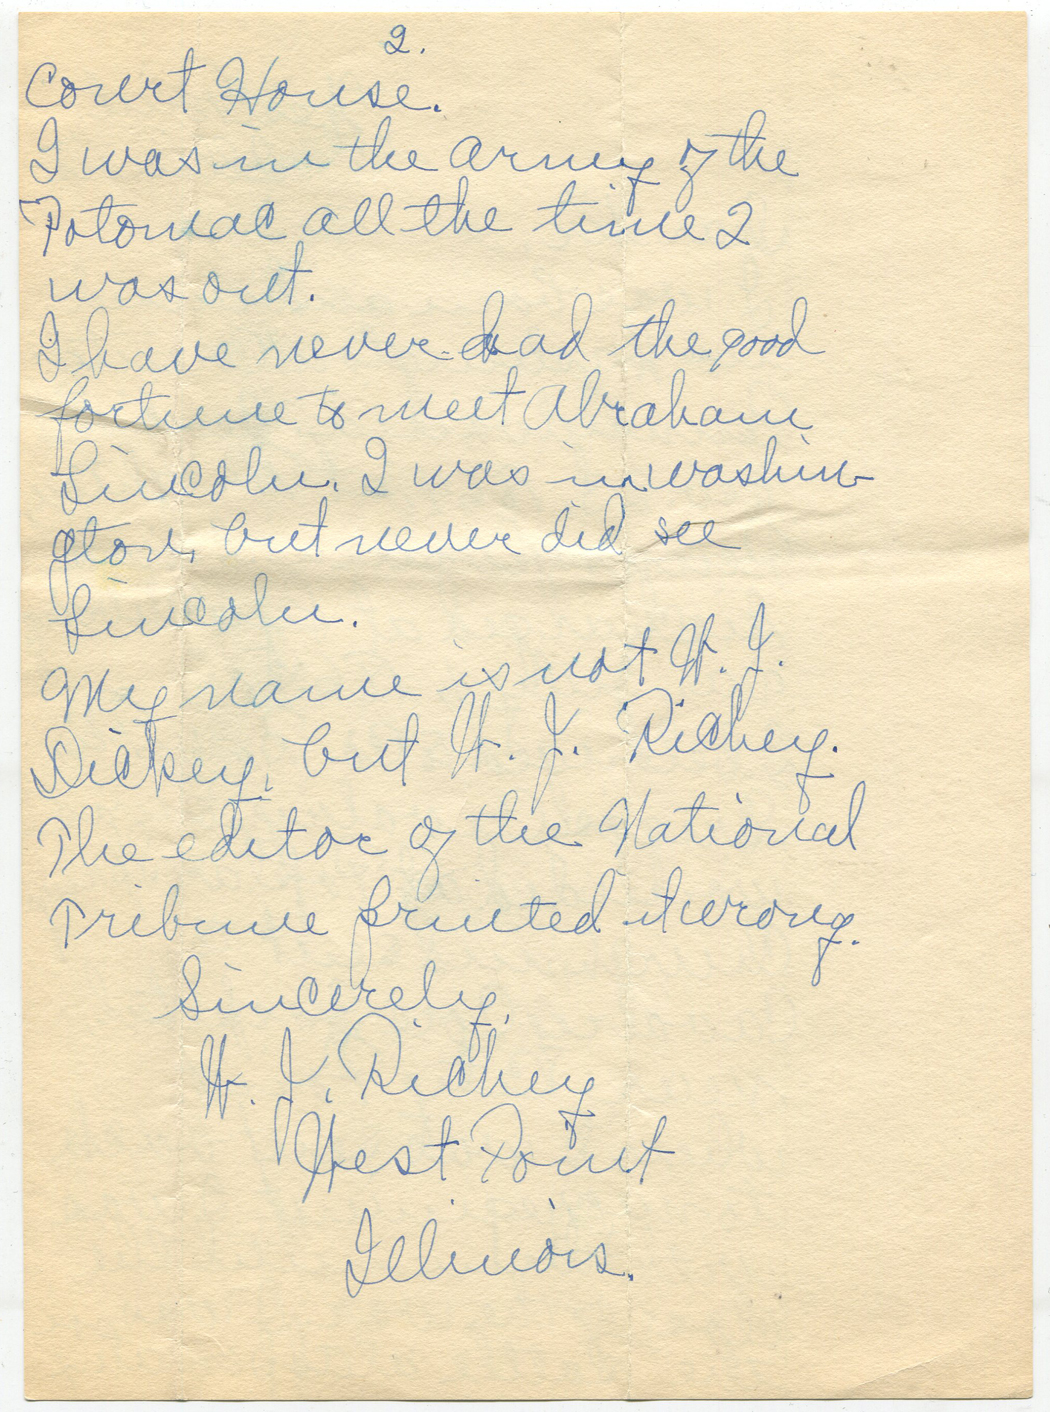 2.
Court House.
I was in the army of the
Potomac all the time I
was out.
I have never had the good
fortune to meet Abraham
Lincoln. I was in washin-
gton, but never did see
Lincoln.
My name is not H. J.
Dickey, but H. J. Richey.
The editor of the National
Tribune printed it wrong.
Sincerely,
H. J. Richey
West Point
Illinois.